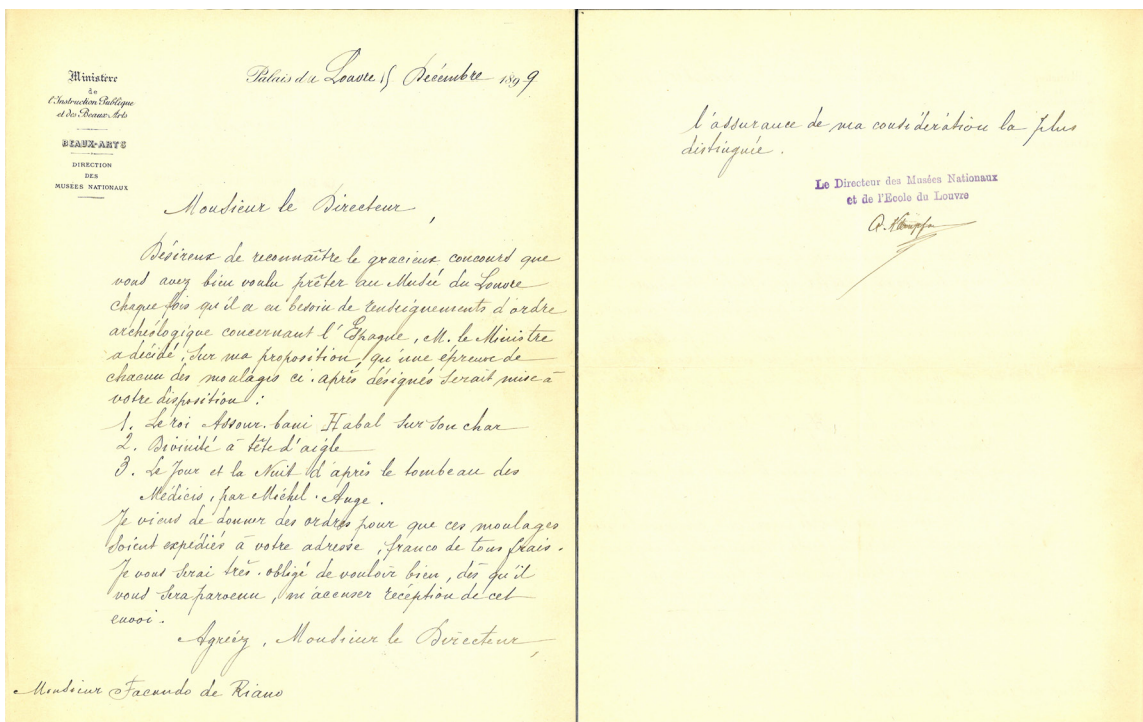 Ministère
de
l'Instruction Publique
et des Beaux-Arts
BEAUX-ARTS
DIRECTION
DES
MUSÉES NATIONAUX
Palais du Louvre 15 Décembre 1899
Monsieur le Directeur,
Désireux de reconnaître le gracieux concours que
vous avez bien voulu prêter au Musée du Louvre
chaque fois qu'il a eu besoin de renseignements d'ordre
archéologique concernant l'Espagne, M. le Ministre
a décidé, sur ma proposition, qu'une épreuve de
chacun des moulages ci-après désignés serait mise à
votre disposition :
1. Le roi Assour-bani Habal sur son char
2. Divinité à tête d'aigle
3. Le Jour et la Nuit d'après le tombeau des
Médicis, par Michel-Ange.
Je viens de donner des ordres pour que ces moulages
soient expédiés à votre adresse, franco de tous frais.
Je vous serai très-obligé de vouloir bien, dès qu'il
vous sera parvenu, m'accuser réception de cet
envoi.
Agréez, Monsieur le Directeur,
Monsieur Facundo de Riano
l'assurance de ma considération la plus
distinguée.
Le Directeur des Musées Nationaux
et de l'Ecole du Louvre